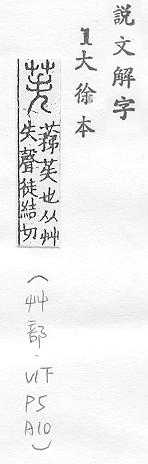 説文解字
1大徐本
苵
蕛苵也从艸
失聲徒結切
(艸部.V1下
P5
A10)